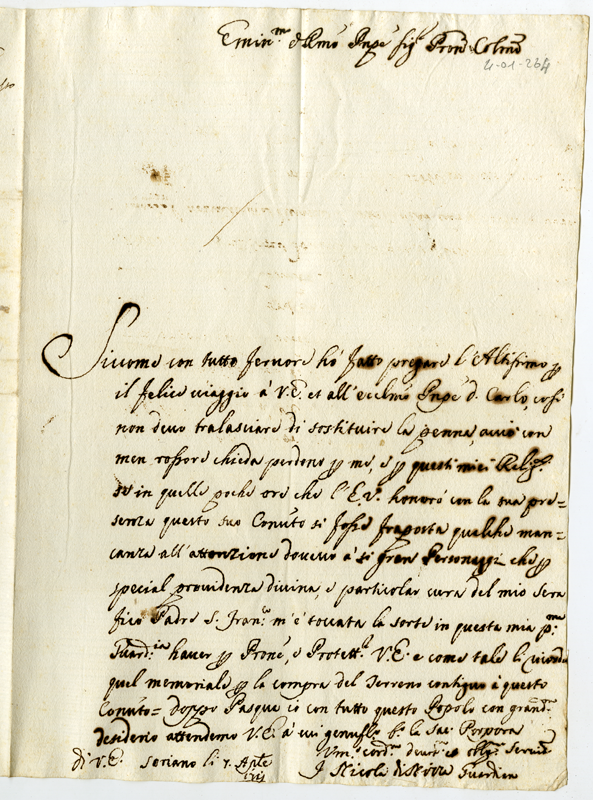 Emin.mo et Rmo Pnpe Sig.r Prone Colmo
4-01-264
Siccome con tutto fervore hó fatto pregare l'Altissimo p
il felice viaggio á V.E. et all'ecclmo Pnpe d. Carlo, cosi
non devo tralasciare di sostituire la penna, acció con
men rossore chieda perdono p me, e p questi miei Relig.si
se in quelle poche ore che l'E.V. honoró con la sua pre=
senza questo suo Convto si fosse fraposta qualche man=
canza all'attenzione dovuta á si gran Personaggi che p
special providenza divina, e particolar cura del mio sera
fico Padre S. Fran.co m'é toccata la sorte in questa mia p.ma
Guard.ia haver p Prone, e Protett.e V.E. e come tale li ricordo
quel memoriale p la compra del Terreno contiguo á questo
Convto= doppo Pasque io con tutto questo Popolo con grand.mo
desiderio attendemo V.E. á cui genufl.o b.o la Sac. Porpora
di V.E. Soriano li 7. Aple
Um.o cord.mo dev.mo et oblig.mo Servite
F Nicola di Guardian